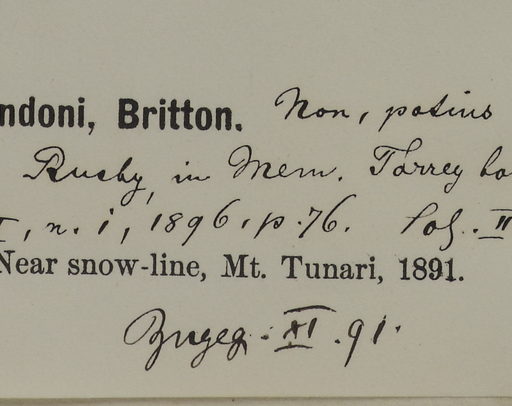 ndoni, Britton. Non, potius
Rusby, in Mem. Torrey bo
I, n. i, 1896, p. 76. II
Near snow-line, Mt. Tunari, 1891.
XI. 91.